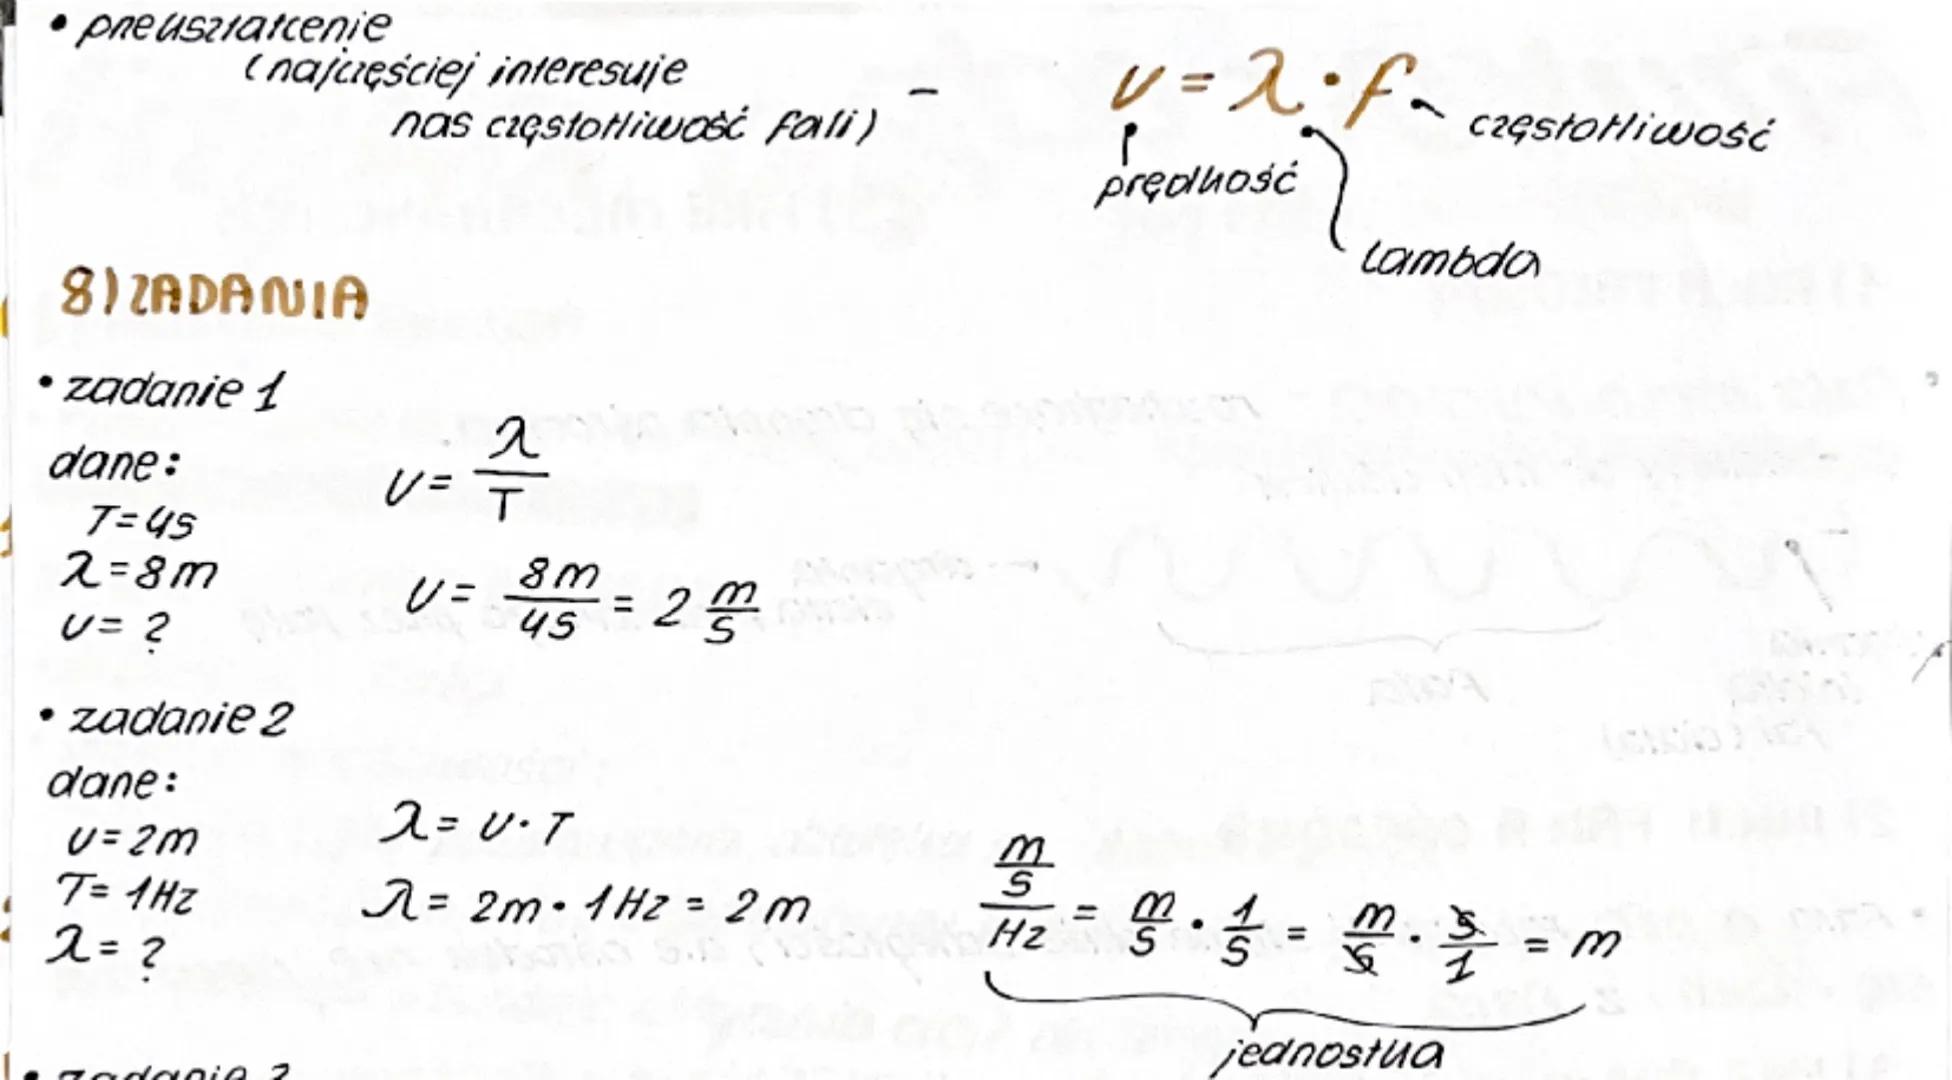 • przekształcenie
(najczęściej interesuje
nas częstotliwość fali) - v = λ · f
częstotliwość
prędkość
lambda
8) ZADANIA
• zadanie 1
dane:
T = 4s
λ = 8m
v = ?
v = λ/T
v = 8m/4s = 2 m/s
• zadanie 2
dane:
v = 2m
T = 1Hz
λ = ?
λ = v · T
λ = 2m · 1Hz = 2m
(m/s)/Hz = m/s · 1/s = m/s · s/1 = m
jednostka
• zadanie 3